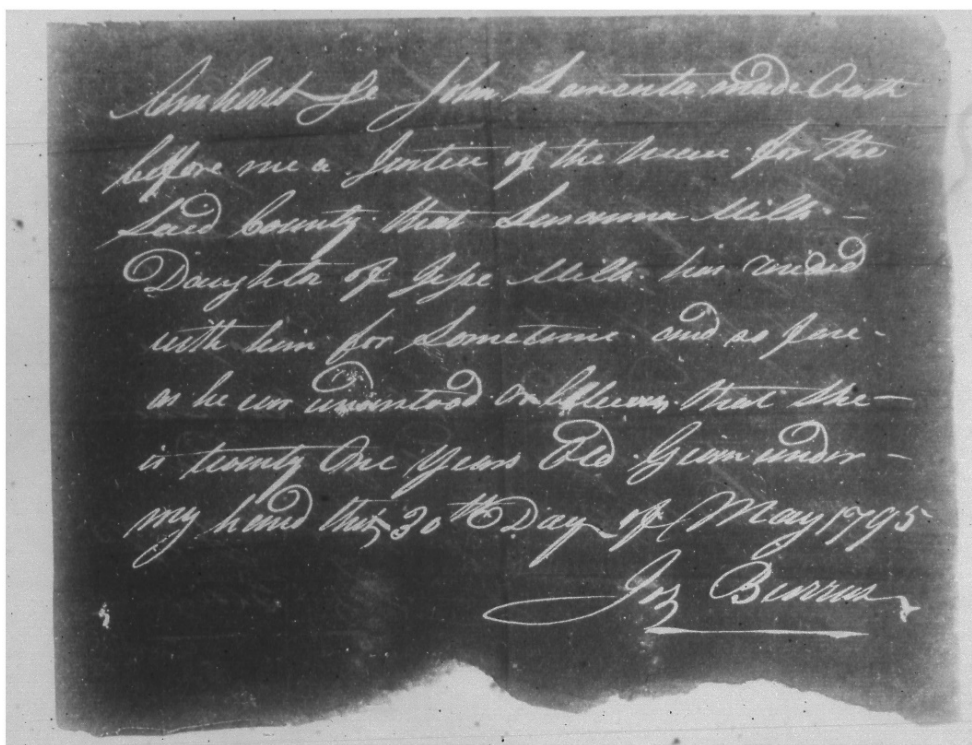 Amherst Sc John Lamenta made Oath
before me a Justice of the peace for the
Said County that Susanna Mills -
Daughter of Jesse Mills has resided
with him for Sometime and so farr -
as he ever understood or believes, that she -
is twenty One years Old Given under -
my hand this 30th Day of May 1795
Jos Burrus